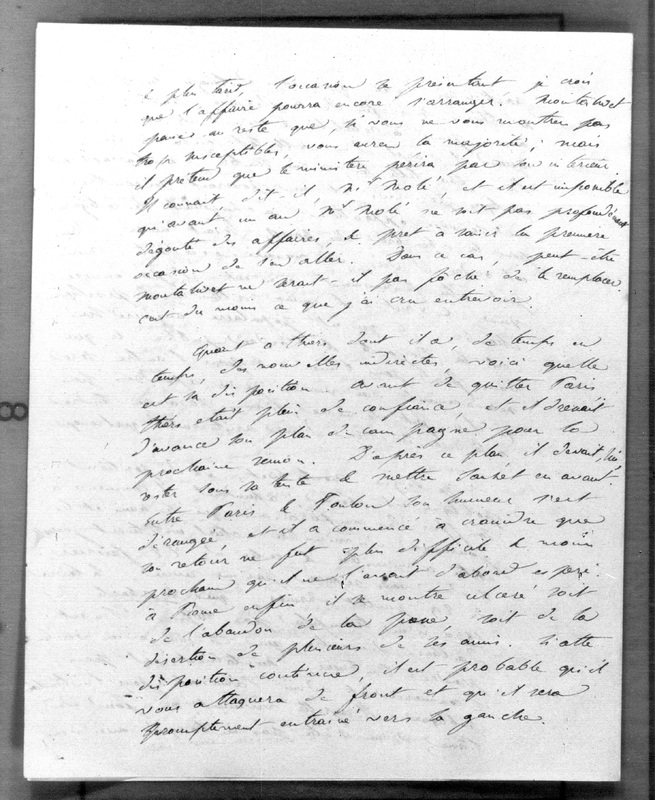 & plus tard, l'occasion se présentant je crois
que l'affaire pourra encore s'arranger. Montalivet
pense au reste que, si vous ne vous montrez pas
trop susceptibles, vous aurez la majorité; mais
il prétend que le ministère périra par son intérieur.
Il connait, dit-il, Mr Molé, et il est impossible
qu'avant un an Mr Molé ne soit pas profondément
dégouté des affaires, & prêt à saisir la première
occasion de s'en aller. Dans ce cas, peut-être
Montalivet ne serait-il pas fâché de le remplacer.
C'est du moins ce que j'ai cru entrevoir.
Quant à Thiers dont il a, de temps en
temps, des nouvelles indirectes, voici quelle
est sa disposition. Avant de quitter Paris
Thiers était plein de confiance, et il dressait
d'avance son plan de campagne pour la
prochaine session. D'après ce plan il devait, lui,
rester sous sa tente & mettre Sauzet en avant.
Entre Paris & Toulon son humeur s'est
dérangée, et il a commencé à craindre que
son retour ne fut plus difficile & moins
prochain qu'il ne l'avait d'abord espéré.
à Rome enfin il se montre ulceré soit
de l'abandon de la
désertion de plusieurs de ses amis. Si cette
disposition continue, il est probable qu'il
vous attaquera de front et qu'il sera
promptement entrainé vers la gauche.
8